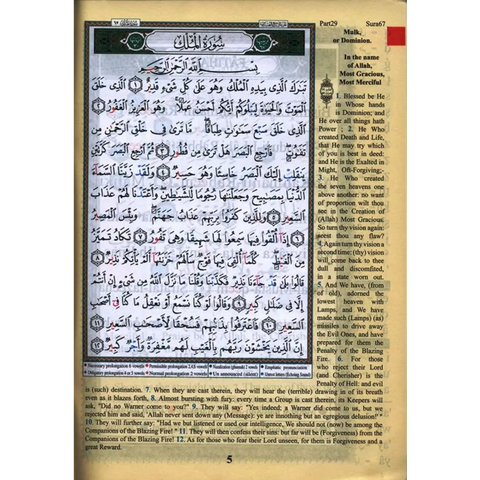 Part29 Sura67
سُورَةُ المُلْكِ
بِسْمِ اللَّهِ الرَّحْمَٰنِ الرَّحِيمِ
تَبَٰرَكَ الَّذِي بِيَدِهِ الْمُلْكُ وَهُوَ عَلَىٰ كُلِّ شَيْءٍ قَدِيرٌ ١ الَّذِي خَلَقَ
الْمَوْتَ وَالْحَيَوٰةَ لِيَبْلُوَكُمْ أَيُّكُمْ أَحْسَنُ عَمَلًا وَهُوَ الْعَزِيزُ الْغَفُورُ ٢
الَّذِي خَلَقَ سَبْعَ سَمَٰوَٰتٍ طِبَاقًا مَّا تَرَىٰ فِي خَلْقِ الرَّحْمَٰنِ مِن
تَفَٰوُتٍ فَارْجِعِ الْبَصَرَ هَلْ تَرَىٰ مِن فُطُورٍ ٣ ثُمَّ ارْجِعِ الْبَصَرَ كَرَّتَيْنِ
يَنقَلِبْ إِلَيْكَ الْبَصَرُ خَاسِئًا وَهُوَ حَسِيرٌ ٤ وَلَقَدْ زَيَّنَّا السَّمَاءَ
الدُّنْيَا بِمَصَٰبِيحَ وَجَعَلْنَٰهَا رُجُومًا لِّلشَّيَٰطِينِ وَأَعْتَدْنَا لَهُمْ عَذَابَ
السَّعِيرِ ٥ وَلِلَّذِينَ كَفَرُوا بِرَبِّهِمْ عَذَابُ جَهَنَّمَ وَبِئْسَ الْمَصِيرُ
٦ إِذَا أُلْقُوا فِيهَا سَمِعُوا لَهَا شَهِيقًا وَهِيَ تَفُورُ ٧ تَكَادُ تَمَيَّزُ
مِنَ الْغَيْظِ كُلَّمَا أُلْقِيَ فِيهَا فَوْجٌ سَأَلَهُمْ خَزَنَتُهَا أَلَمْ يَأْتِكُمْ نَذِيرٌ
٨ قَالُوا بَلَىٰ قَدْ جَاءَنَا نَذِيرٌ فَكَذَّبْنَا وَقُلْنَا مَا نَزَّلَ اللَّهُ مِن شَيْءٍ إِنْ أَنتُمْ
إِلَّا فِي ضَلَٰلٍ كَبِيرٍ ٩ وَقَالُوا لَوْ كُنَّا نَسْمَعُ أَوْ نَعْقِلُ مَا كُنَّا فِي
أَصْحَٰبِ السَّعِيرِ ١٠ فَاعْتَرَفُوا بِذَنبِهِمْ فَسُحْقًا لِّأَصْحَٰبِ السَّعِيرِ ١١
إِنَّ الَّذِينَ يَخْشَوْنَ رَبَّهُم بِالْغَيْبِ لَهُم مَّغْفِرَةٌ وَأَجْرٌ كَبِيرٌ ١٢
Mulk,
or Dominion.
In the name
of Allah,
Most Gracious,
Most Merciful
1. Blessed be He
in Whose hands
is Dominion; and
He over all things hath
Power ; 2. He Who
created Death and Life,
that He may try which
of you is best in deed:
and He is the Exalted in
Might, Oft-Forgiving;-
3. He Who created
the seven heavens one
above another: no want
of proportion wilt thou
see in the Creation of
(Allah) Most Gracious.
So turn thy vision again:
seest thou any flaw?
4. Again turn thy vision a
second time: (thy) vision
will come back to thee
dull and discomfited,
in a state worn out.
5. And We have, (from
of old), adorned the
lowest heaven with
Lamps, and We have
made such (Lamps) (as)
missiles to drive away
the Evil Ones, and have
prepared for them the
Penalty of the Blazing
Fire. 6. For those
who reject their Lord
(and Cherisher) is the
Penalty of Hell: and evil
is (such) destination. 7. When they are cast therein, they will hear the (terrible) drawing in of its breath
even as it blazes forth, 8. Almost bursting with fury: every time a Group is cast therein, its Keepers will
ask, "Did no Warner come to you?" 9. They will say: "Yes indeed; a Warner did come to us, but we
rejected him and said, 'Allah never sent down any (Message): ye are innothing but an egregious delusion!' "
10. They will further say: "Had we but listened or used our intelligence, We should not (now) be among the
Companions of the Blazing Fire! " 11. They will then confess their sins: but far be (Forgiveness) from the
Companions of the Blazing Fire! 12. As for those who fear their Lord unseen, for them is Forgiveness and a
great Reward.
5